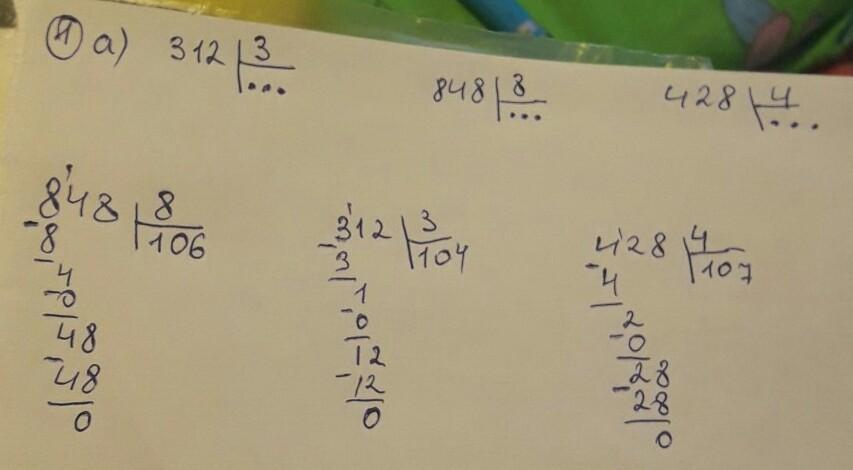 ④ а) 312 | 3 848 | 8 428 | 4
... ... ...
848 | 8 312 | 3 428 | 4
-8 106 -3 104 -4 107
4 1 2
-0 -0 -0
48 12 28
-48 -12 -28
0 0 0